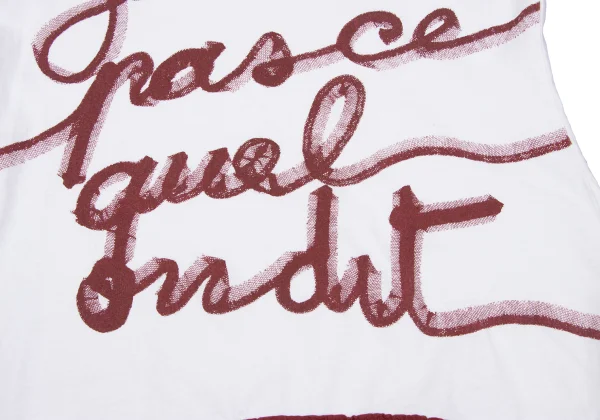 pas ce
quel
on dit